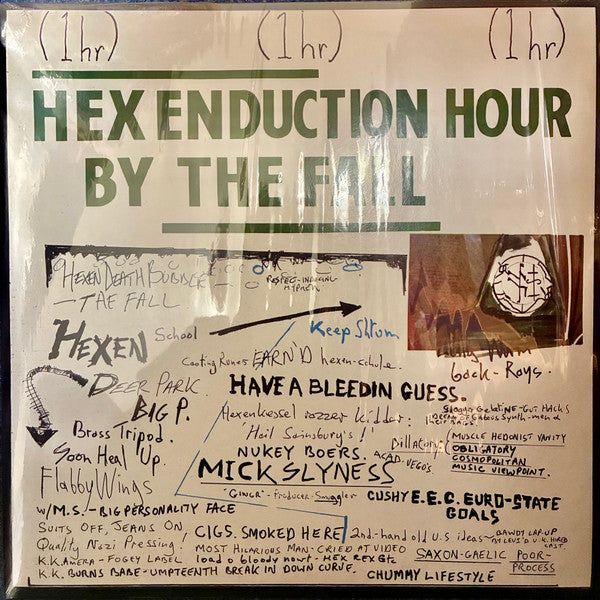 (1 hr) (1 hr) (1 hr)
HEX ENDUCTION HOUR
BY THE FALL
HEXEN DEATH BUBBER
— THE FALL
HYPHEN
HEXEN School
Keep Shtum
Casting Runes EARN'D hexen-schule.
back-Roys.
DEER PARK
HAVE A BLEEDIN GUESS.
BIG P.
Hexenkessel rozzer kidder:
Brass Tripod.
'Hail Sainsbury's!'
MUSCLE HEDONIST VANITY
OBLIGATORY
COSMOPOLITAN
MUSIC VIEWPOINT.
Soon Heal Up.
NUKEY BOERS.
ACAD. VEGOS
Flabby Wings
MICK SLYNESS
"GINGR"-Producer-Smuggler
CUSHY E.E.C. EURO-STATE
GOALS
W/M.S.-BIG PERSONALITY FACE
SUITS OFF, JEANS ON
CIGS. SMOKED HERE
2nd.-hand old U.S ideas~
BAWDY LAP-UP
BY LEVI'D U.K. HIRED
CAST.
Quality Nazi Pressing.
MOST HILARIOUS MAN-CRIED AT VIDEO
SAXON-GAELIC POOR-
PROCESS
K.K. AMERA-FOGEY LABEL
load o bloody nowt-HEX REX Gtr
K.K. BURNS BABE-UMPTEENTH BREAK IN DOWN CURVE.
CHUMMY LIFESTYLE